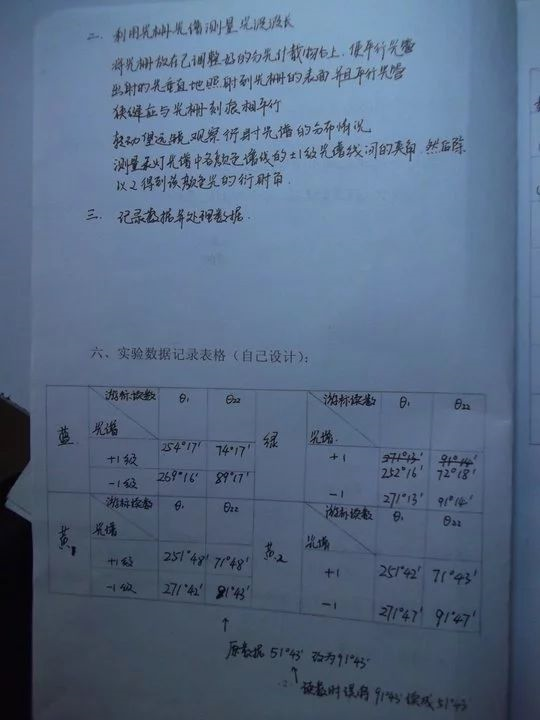 二、利用光栅光谱测量光波波长
将光栅放在已调整好的分光计载物台上，使平行光管
出射的光垂直地照射到光栅的表面并且平行光管
狭缝应与光栅刻痕相平行
转动望远镜观察衍射光谱的分布情况
测量汞灯光谱中各颜色谱线的±1级光谱线间的夹角，然后除
以2得到该颜色光的衍射角.
三、记录数据并处理数据.
六、实验数据记录表格（自己设计）：
蓝 游标读数 光谱 θ₁ θ₂₂ 绿 游标读数 光谱. θ₁ θ₂₂
+1级 254°17′ 74°17′ +1 271°13′ 91°14′
252°16′ 72°18′
-1级 269°16′ 89°17′ -1 271°13′ 91°14′
黄₁ 游标读数 光谱 θ₁ θ₂₂ 黄₂ 游标读数 光谱 θ₁ θ₂₂
+1级 251°48′ 71°48′ +1 251°42′ 71°43′
-1级 271°42′ 91°43′ -1 271°47′ 91°47′
↑
原数据 51°43′ 改为91°43′
↑
读数时误将91°43′读成51°43′
·2·